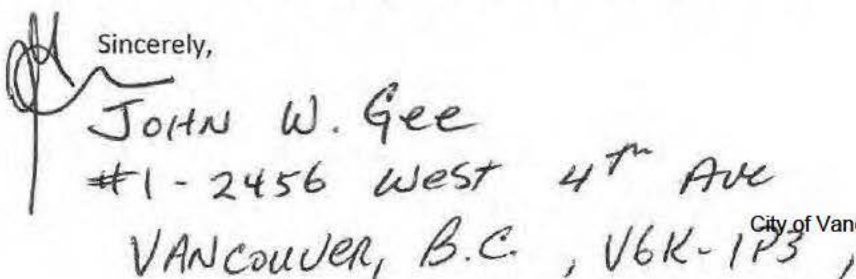 Sincerely,
JOHN W. Gee
#1 - 2456 West 4th Ave
VANCOUVER, B.C. , V6K-1P3 ,
City of Vanc